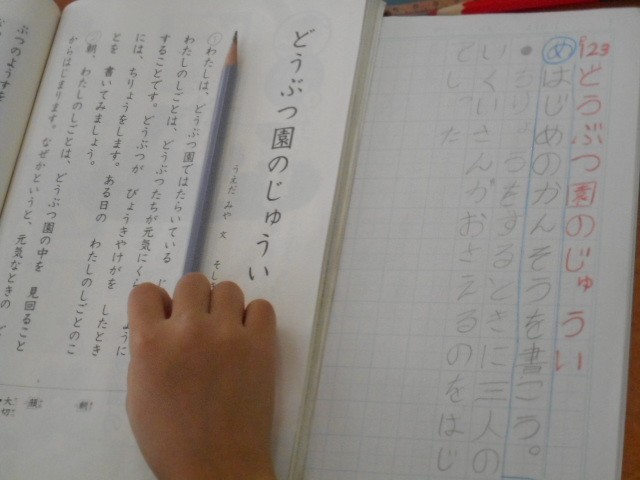 P123
どうぶつ園のじゅうい
めはじめのかんそうを書こう。
うをするときに三人の
いくいさんがおさえるのをはじ
てしった
どうぶつ園のじゅうい
うえだ みや 文
①わたしは、どうぶつ園ではたらいている
わたしのしごとは、どうぶつたちが元気にくら ように
することです。どうぶつが びょうきやけがを したとき
には、ちりょうをします。ある日の わたしのしごとのこ
とを 書いてみましょう。
②朝、わたしのしごとは、どうぶつ園の中を 見回ること
からはじまります。なぜかというと、元気なときの
ぶつのようすを
朝
顔
大切